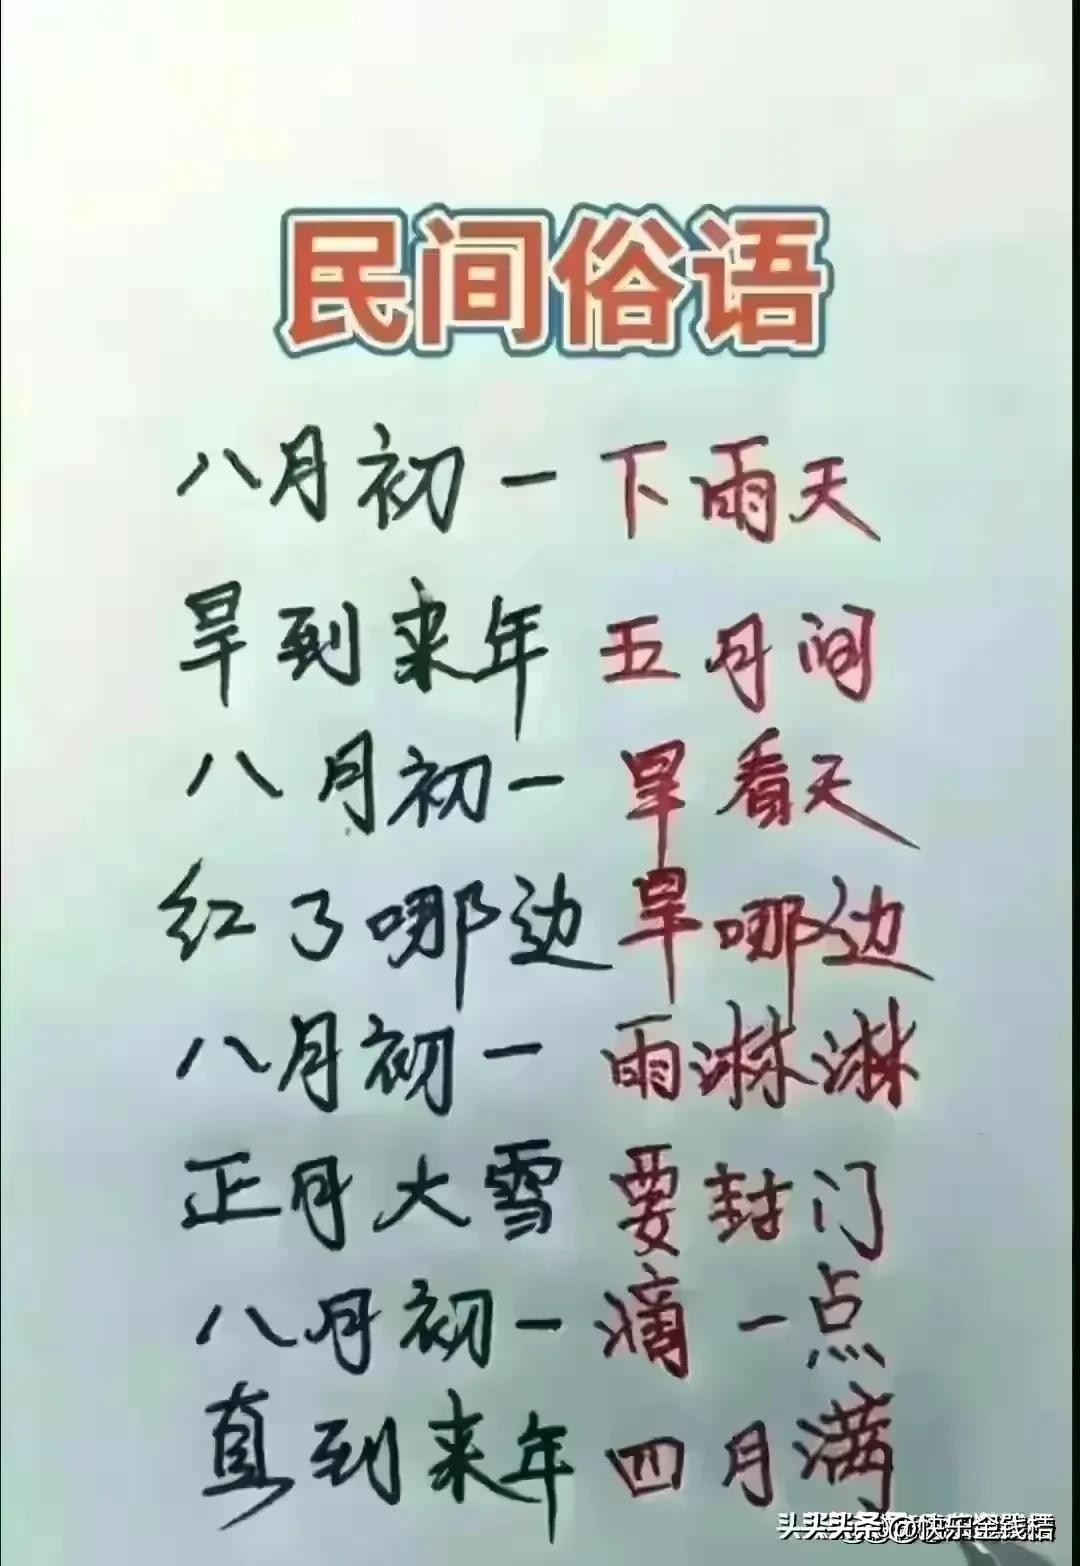 民间俗语
八月初一下雨天
旱到来年五月间
八月初一旱看天
红了哪边旱哪边
八月初一雨淋淋
正月大雪要封门
八月初一滴一点
直到来年四月满
头条 @快乐金钱悟